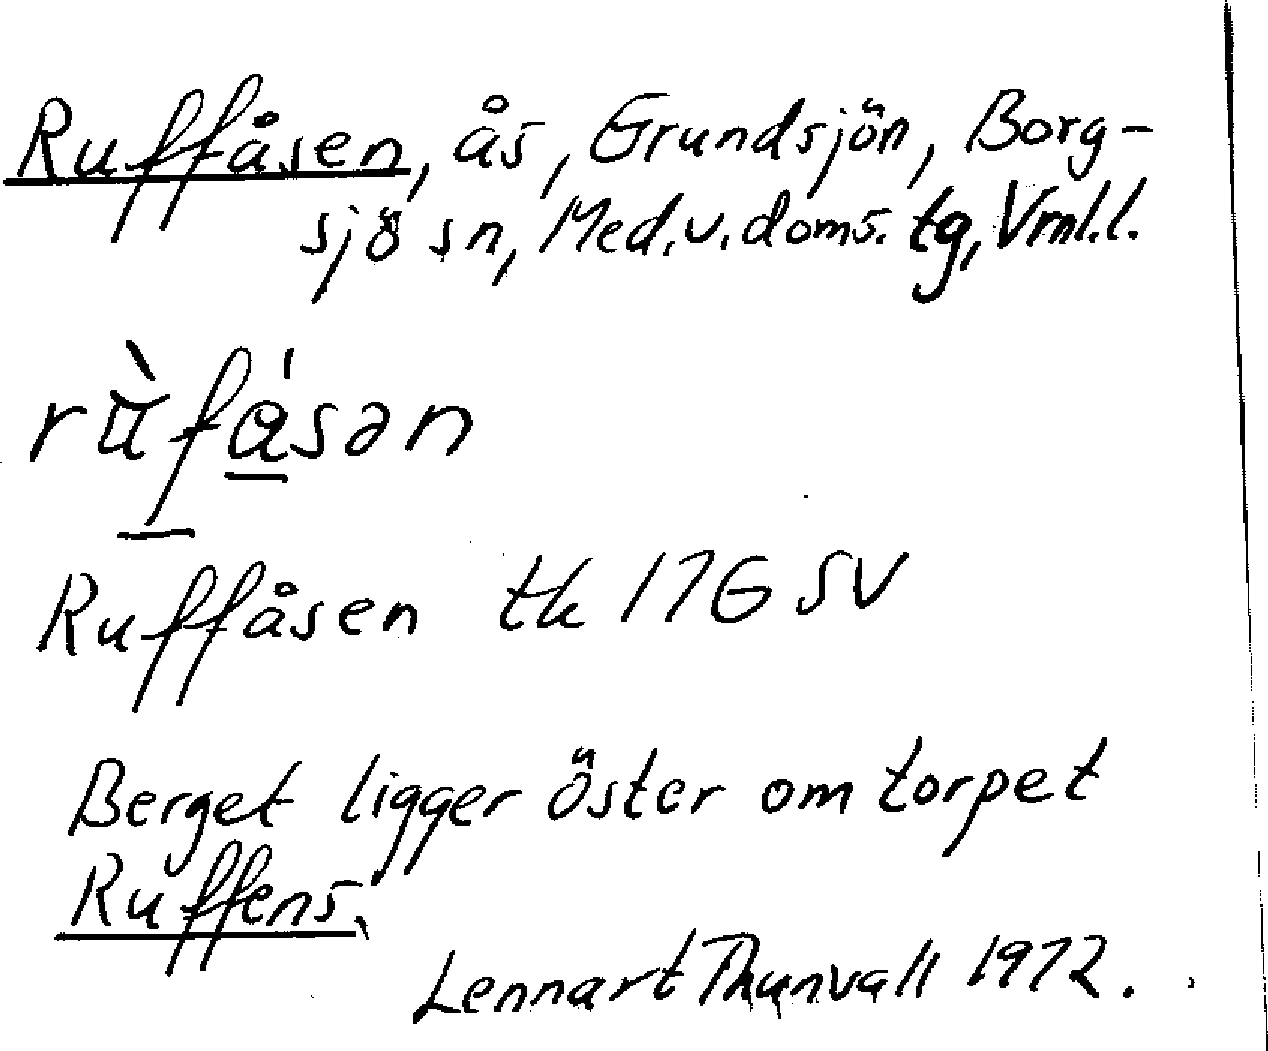 Ruffåsen, ås, Grundsjön, Borg-
sjö sn, Med.v.doms.tg, Vrml.l.
rùfásən
Ruffåsen tk 17G SV
Berget ligger öster om torpet
Ruffens.
Lennart Thunvall 1972.